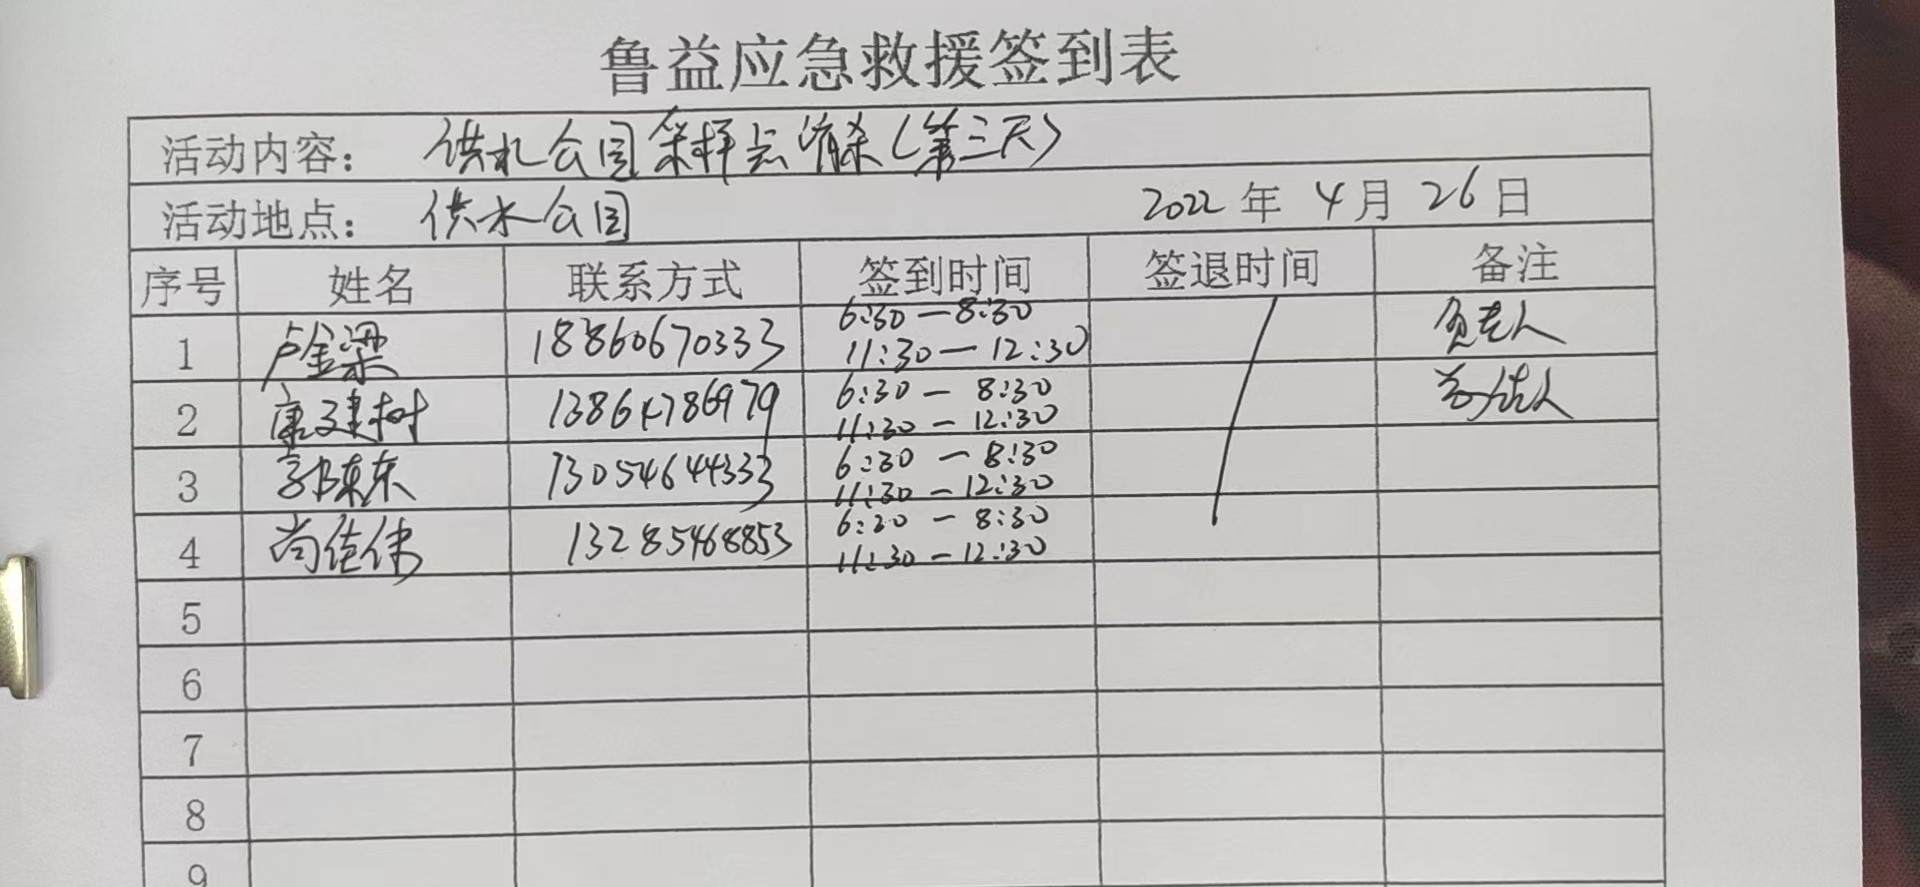 鲁益应急救援签到表
活动内容: 供水公园采样点消杀(第三天)
活动地点: 供水公园 2022年4月26日
序号 姓名 联系方式 签到时间 签退时间 备注
1 卢金梁 18860670333 6:30—8:30 11:30—12:30 负责人
2 康建树 13864786979 6:30—8:30 11:30—12:30
3 郭陈东 13054644333 6:30—8:30 11:30—12:30
4 尚佳伟 13285468853 6:30—8:30 11:30—12:30
5
6
7
8
9